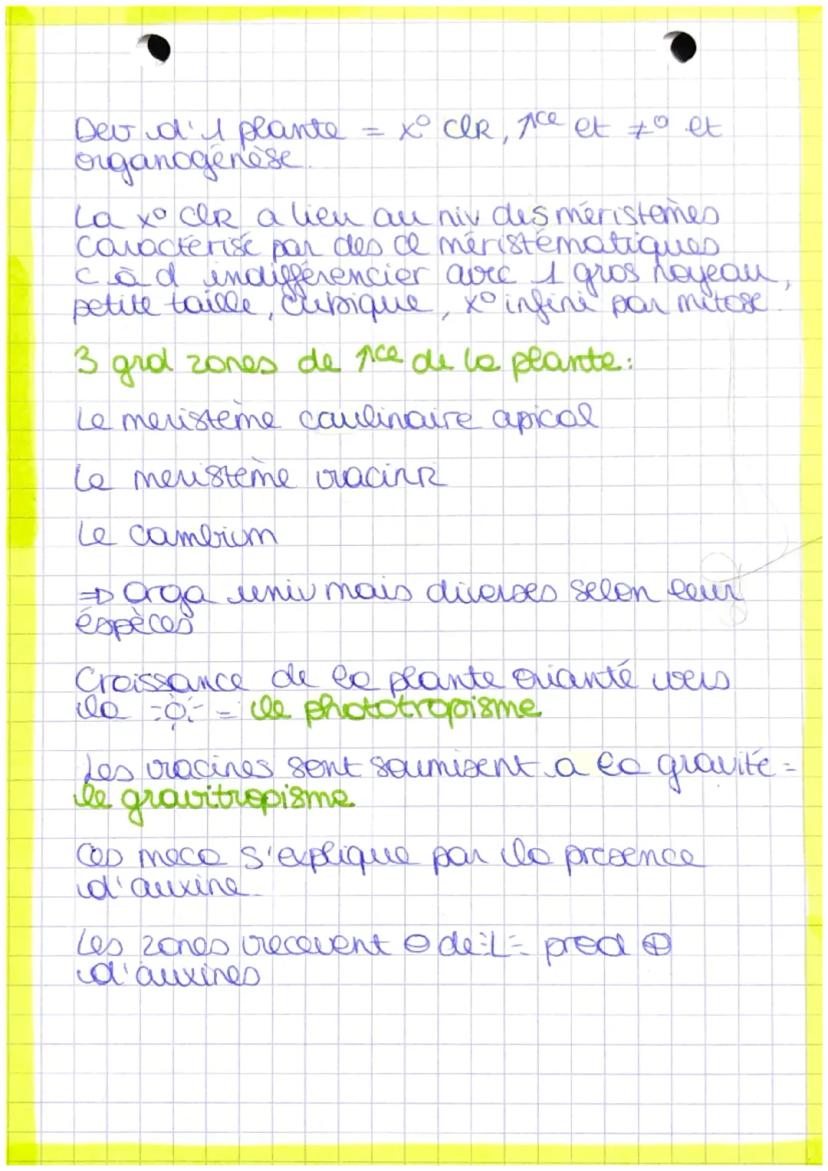 Dev d'1 plante = x° ClR, ↑ce et ≠° et
organogénèse.
La x° ClR a lieu au niv des méristèmes
caractérisé par des cl méristématiques
c à d indifférencier avec 1 gros noyeau,
petite taille, cubique, x° infini par mitose.
3 grd zones de ↑ce de la plante :
Le meristème caulinaire apical
Le meristème racinR
Le cambium
⇒ Orga univ mais diverses selon leur
éspèces
Croissance de la plante orianté vers
la = le phototropisme
Les racines sont soumisent a la gravité =
le gravitropisme
Ces meca s'explique par la presence
d'auxine
Les zones recevent ⊖ de L = prod ⊕
d'auxines